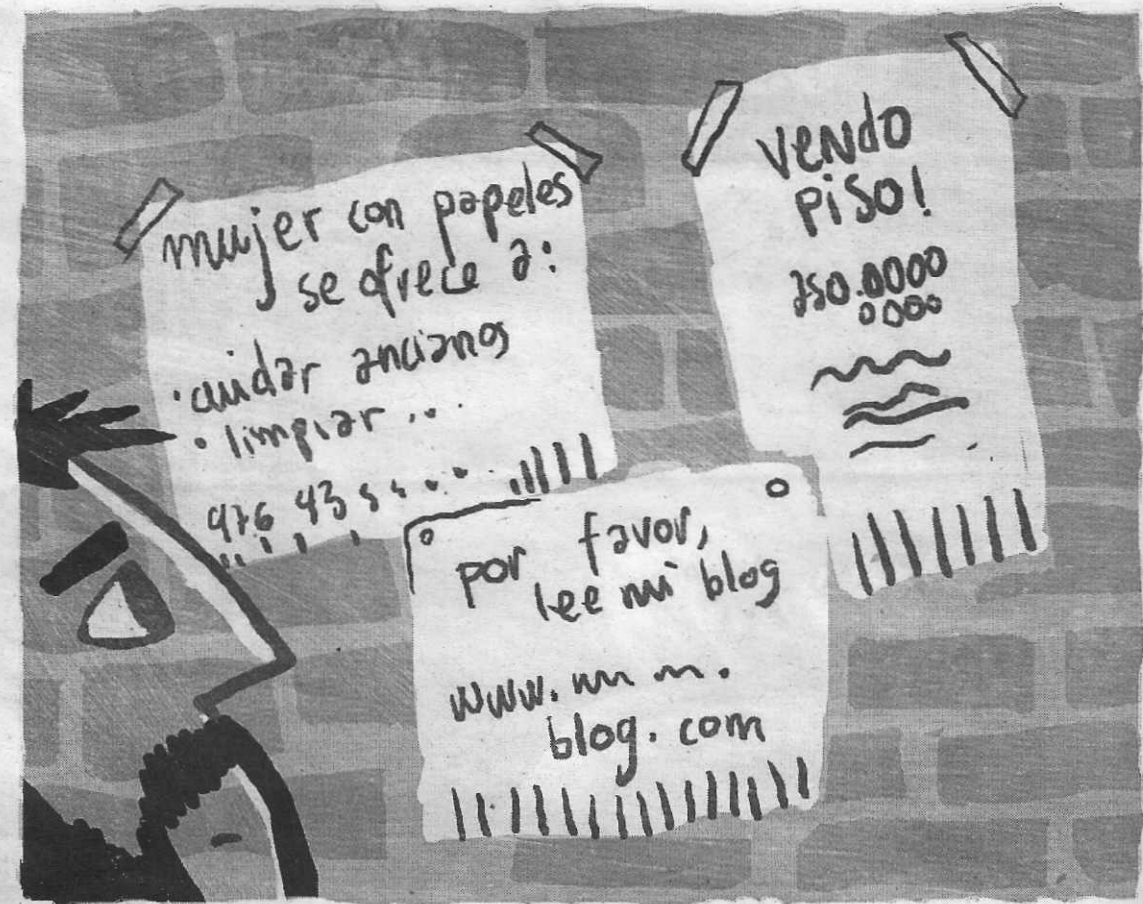 mujer con papeles
se ofrece a:
· cuidar ancianos
· limpiar ...
976 43
vendo
piso!
250.0000
0000
por favor,
lee mi blog
www.
blog.com